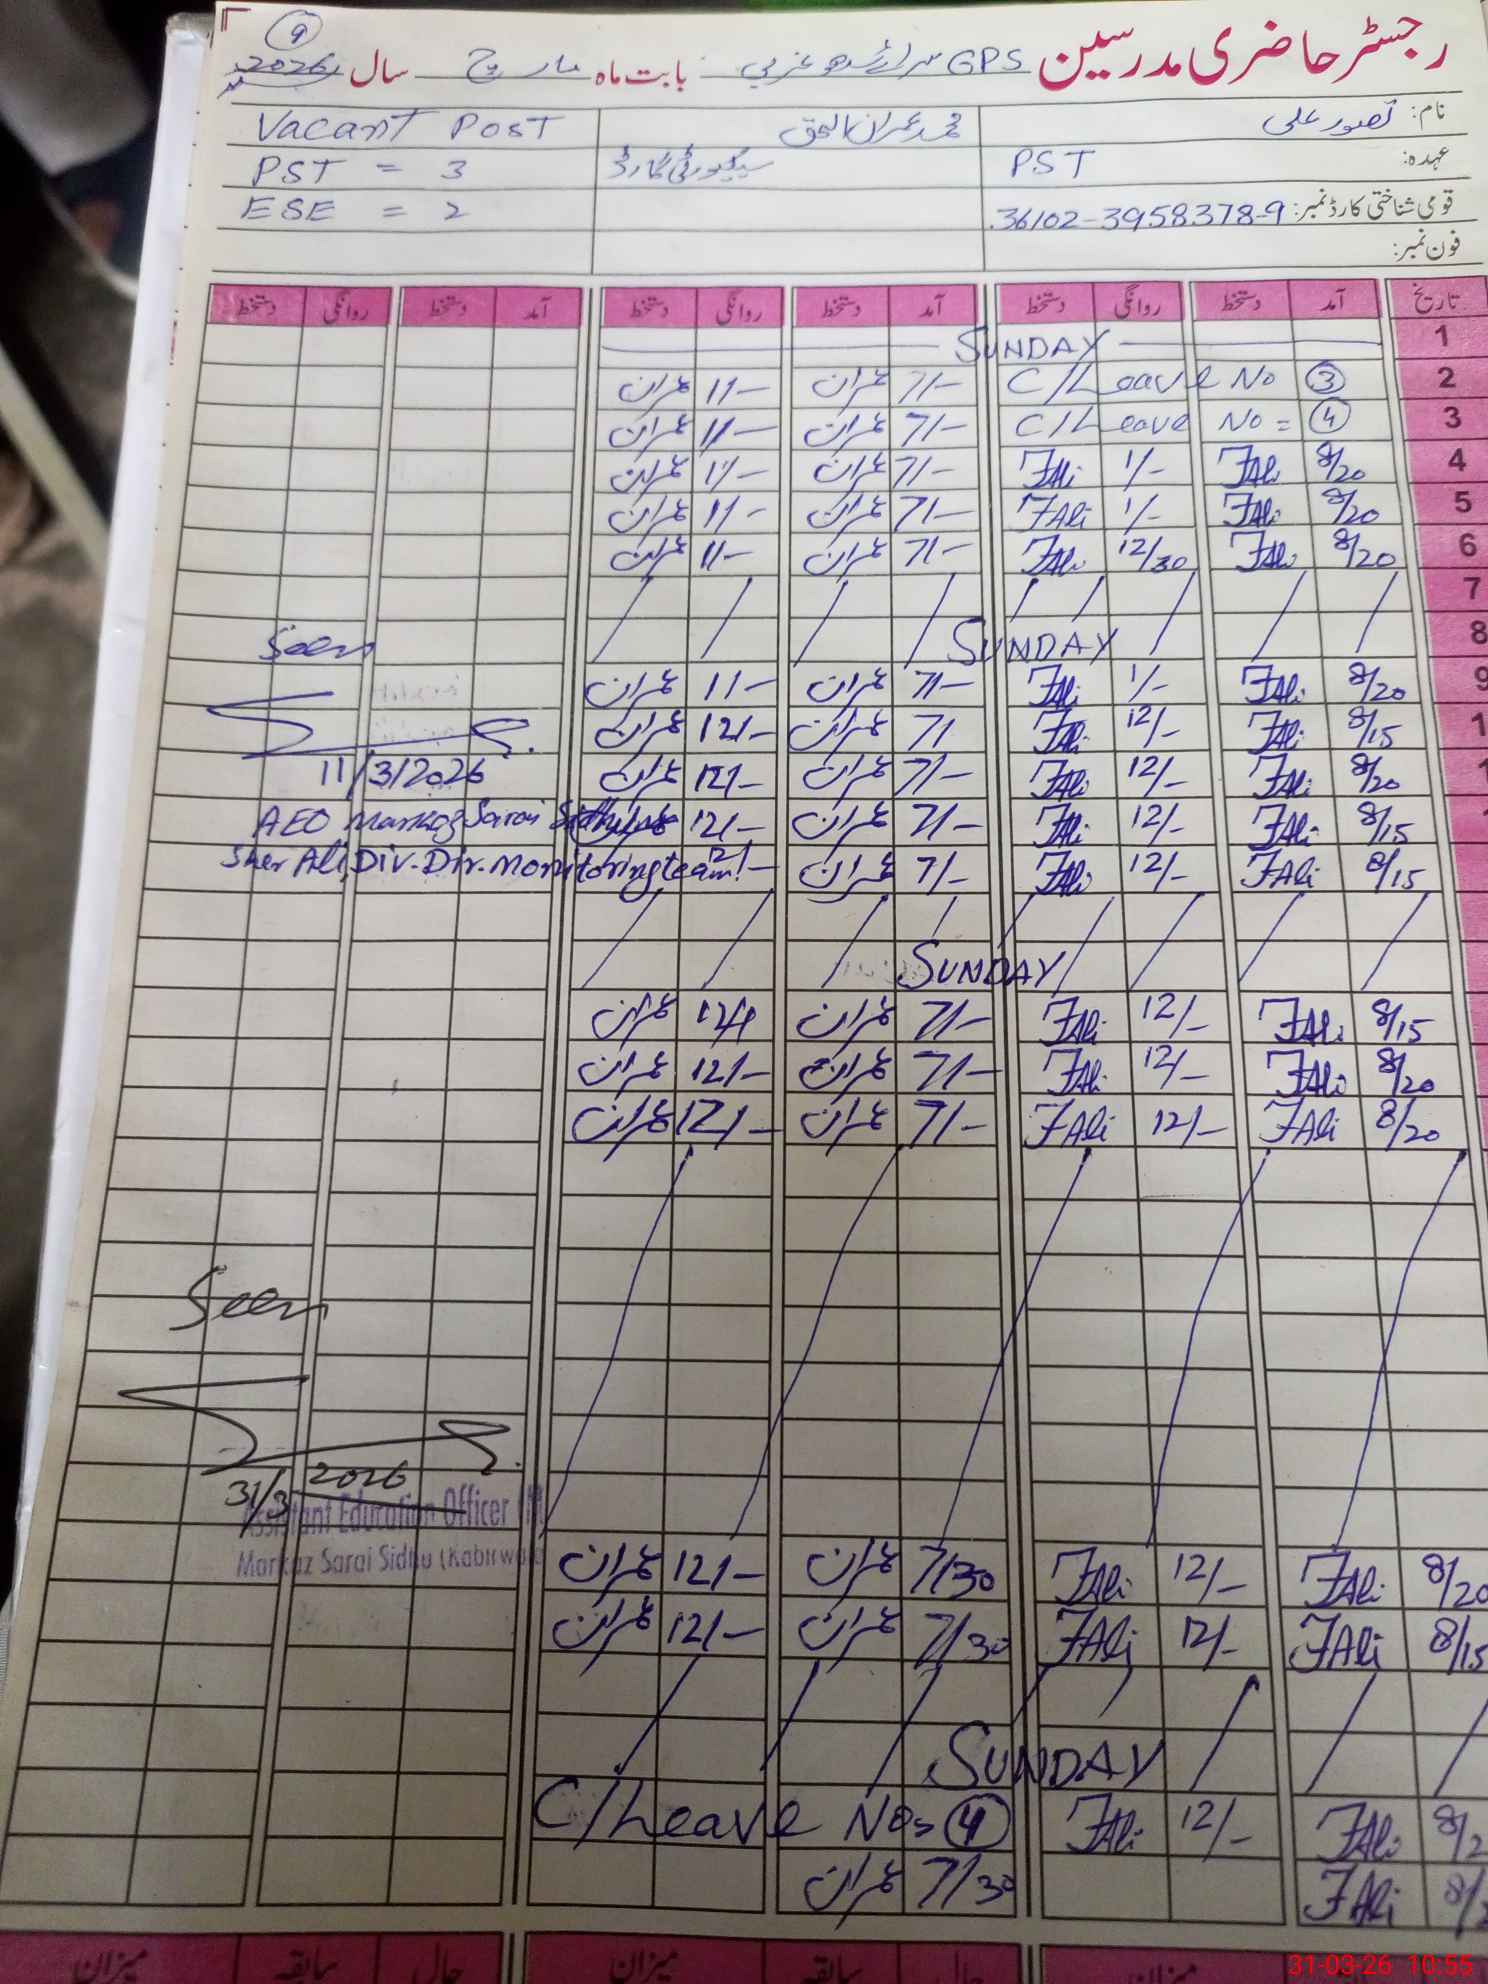 9
رجسٹر حاضری مدرسین GPS سرائے سدھو غربی بابت ماہ مارچ سال 2026
نام: تصور علی
محمد عمران الحق
Vacant Post
عہدہ: PST
سیکیورٹی گارڈ
PST = 3
قومی شناختی کارڈ نمبر: 36102-3958378-9
ESE = 2
فون نمبر:
تاریخ آمد دستخط روانگی دستخط آمد دستخط روانگی دستخط آمد دستخط روانگی دستخط
1 SUNDAY
2 C/Leave No 3 7/- عمران 11/- عمران
3 C/Leave No = 4 7/- عمران 11/- عمران
4 8/20 FAli 1/- FAli 7/- عمران 11/- عمران
5 8/20 FAli 1/- FAli 7/- عمران 11/- عمران
6 8/20 FAli 12/30 FAli 7/- عمران 11/- عمران
7
8 SUNDAY
Seen
9 8/20 FAli 1/- FAli 7/- عمران 11/- عمران
1 8/15 FAli 12/- FAli 7/ عمران 12/- عمران
1 8/20 FAli 12/- FAli 7/- عمران 12/- عمران
11/3/2026
8/15 FAli 12/- FAli 7/- عمران 12/-
AEO Markaz Sarai Sidhu
8/15 FAli 12/- FAli 7/- عمران 12/-
Sher Ali, Div. Dir. Monitoring team
SUNDAY
8/15 FAli 12/- FAli 7/- عمران 12/- عمران
8/20 FAli 12/- FAli 7/- عمران 12/- عمران
8/20 FAli 12/- FAli 7/- عمران 12/- عمران
Seen
31/3/2026
Assistant Education Officer (M)
Markaz Sarai Sidhu (Kabirwala
8/20 FAli 12/- FAli 7/30 عمران 12/- عمران
8/15 FAli 12/- FAli 7/30 عمران 12/- عمران
SUNDAY
8/2 FAli 12/- FAli C/Leave No= 4
8/ FAli 7/30 عمران
میزان حال سابقہ میزان حال سابقہ میزان
31-03-26 10:55